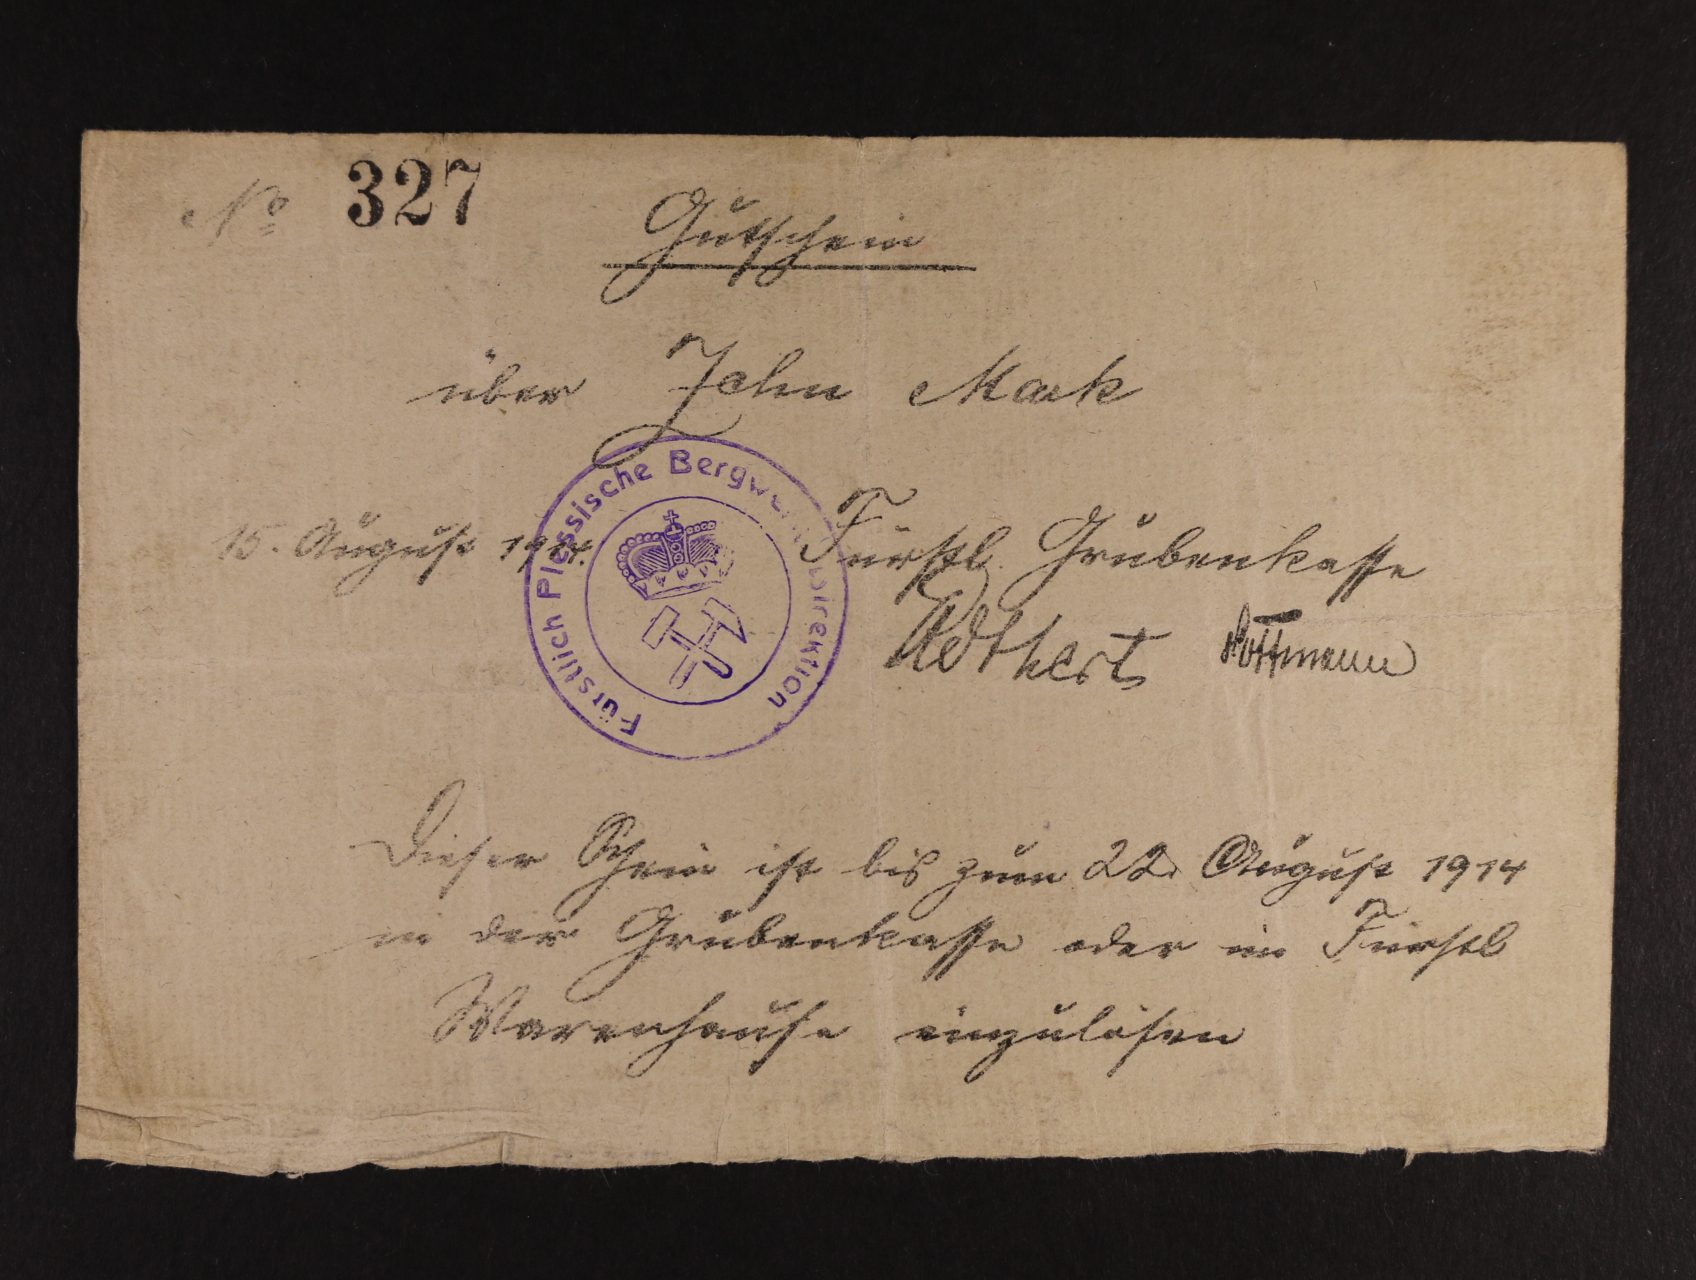 No 327
Gutschein
über Zehn Mark
Fürstlich Plessische Bergwerksdirektion
15. August 1914. Fürstl. Grubenkasse
Dieser Schein ist bis zum 22. August 1914
in der Grubenkasse oder im Fürstl
Warenhause einzulösen